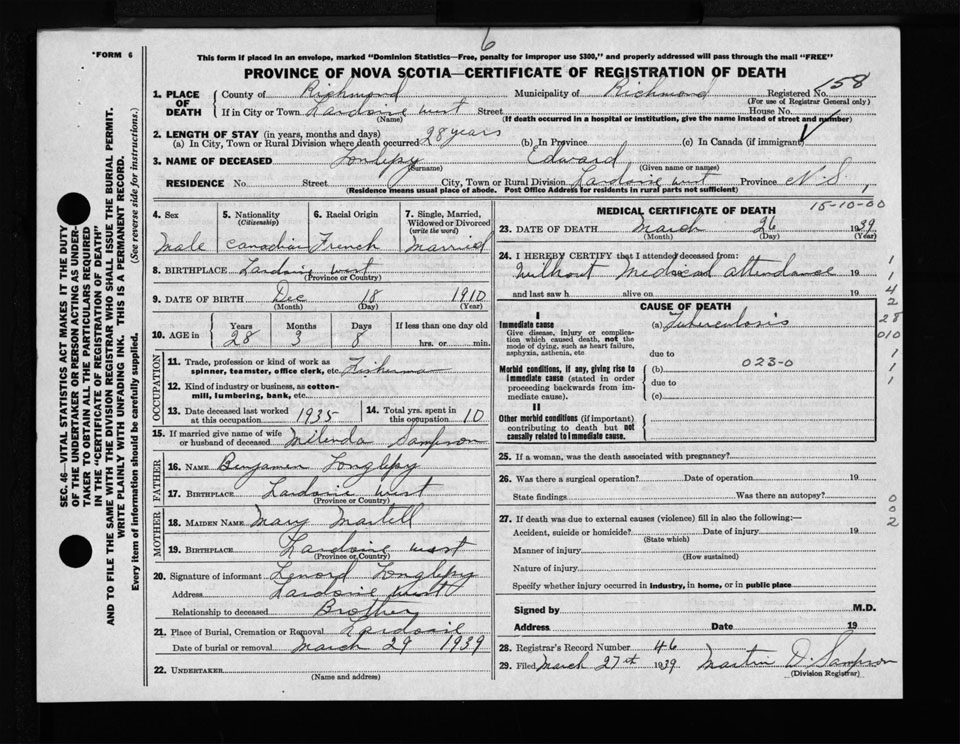 6
*FORM 6
This form if placed in an envelope, marked "Dominion Statistics—Free, penalty for improper use $300," and properly addressed will pass through the mail "FREE"
PROVINCE OF NOVA SCOTIA—CERTIFICATE OF REGISTRATION OF DEATH
158
1. PLACE OF DEATH
County of Richmond Municipality of Richmond Registered No.
(For use of Registrar General only)
If in City or Town Lardoise west Street House No.
(Name) (If death occurred in a hospital or institution, give the name instead of street and number)
2. LENGTH OF STAY (in years, months and days)
(a) In City, Town or Rural Division where death occurred 28 years (b) In Province (c) In Canada (if immigrant)
3. NAME OF DECEASED Longlepy Edward
(Surname) (Given name or names)
RESIDENCE No. Street City, Town or Rural Division Lardoise west Province N.S.
(Residence means usual place of abode. Post Office Address for residents in rural parts not sufficient)
4. Sex Male
5. Nationality (Citizenship) Canadian
6. Racial Origin French
7. Single, Married, Widowed or Divorced (write the word) Married
8. BIRTHPLACE Lardoise west
(Province or Country)
9. DATE OF BIRTH Dec 18 1910
(Month) (Day) (Year)
10. AGE in Years Months Days If less than one day old
28 3 8 hrs. or min.
OCCUPATION
11. Trade, profession or kind of work as spinner, teamster, office clerk, etc. Fisherman
12. Kind of industry or business, as cotton-mill, lumbering, bank, etc.
13. Date deceased last worked at this occupation 1935
14. Total yrs. spent in this occupation 10
15. If married give name of wife or husband of deceased Milenda Sampson
FATHER
16. NAME Benjamen Longlepy
17. BIRTHPLACE Lardoise west
(Province or Country)
MOTHER
18. MAIDEN NAME Mary Martell
19. BIRTHPLACE Lardoise west
(Province or Country)
20. Signature of informant Lenord Longlepy
Address Lardoise west
Relationship to deceased Brother
21. Place of Burial, Cremation or Removal Lardoise
Date of burial or removal March 29 1939
22. UNDERTAKER
(Name and address)
MEDICAL CERTIFICATE OF DEATH 15-10-00
23. DATE OF DEATH March 26 1939
(Month) (Day) (Year)
24. I HEREBY CERTIFY that I attended deceased from:
Without Medical attendance 19
and last saw h alive on 19
CAUSE OF DEATH
I
Immediate cause (a) Tuberculosis
Give disease, injury or complication which caused death, not the mode of dying, such as heart failure, asphyxia, asthenia, etc
due to
Morbid conditions, if any, giving rise to Immediate cause (stated in order proceeding backwards from immediate cause).
(b) 023-0
due to
(c)
II
Other morbid conditions (if important) contributing to death but not causally related to Immediate cause.
1
1
4
2
28
010
1
1
1
25. If a woman, was the death associated with pregnancy?
26. Was there a surgical operation? Date of operation 19
State findings Was there an autopsy?
0
0
2
27. If death was due to external causes (violence) fill in also the following:—
Accident, suicide or homicide? Date of injury 19
(State which)
Manner of injury
(How sustained)
Nature of injury
Specify whether injury occurred in industry, in home, or in public place
Signed by M.D.
Address Date 19
28. Registrar's Record Number 46
29. Filed March 27st 1939 Martin D. Sampson
(Division Registrar)
SEC. 46—VITAL STATISTICS ACT MAKES IT THE DUTY
OF THE UNDERTAKER OR PERSON ACTING AS UNDER-
TAKER TO OBTAIN ALL THE PARTICULARS REQUIRED
IN THE "CERTIFICATE OF REGISTRATION OF DEATH"
AND TO FILE THE SAME WITH THE DIVISION REGISTRAR WHO SHALL ISSUE THE BURIAL PERMIT.
WRITE PLAINLY WITH UNFADING INK. THIS IS A PERMANENT RECORD.
Every item of information should be carefully supplied. (See reverse side for instructions.)